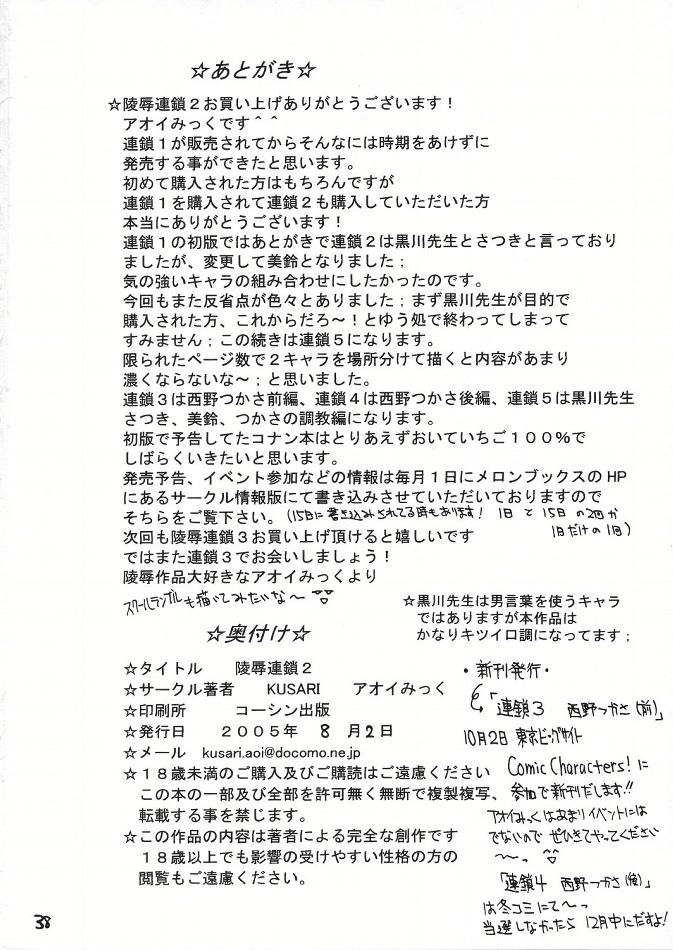 ☆あとがき☆
☆陵辱連鎖２お買い上げありがとうございます！
アオイみっくです＾＾
連鎖１が販売されてからそんなには時期をあけずに
発売する事ができたと思います。
初めて購入された方はもちろんですが
連鎖１を購入されて連鎖２も購入していただいた方
本当にありがとうございます！
連鎖１の初版ではあとがきで連鎖２は黒川先生とさつきと言っており
ましたが、変更して美鈴となりました；
気の強いキャラの組み合わせにしたかったのです。
今回もまた反省点が色々とありました；まず黒川先生が目的で
購入された方、これからだろ～！とゆう処で終わってしまって
すみません；この続きは連鎖５になります。
限られたページ数で２キャラを場所分けて描くと内容があまり
濃くならないな～；と思いました。
連鎖３は西野つかさ前編、連鎖４は西野つかさ後編、連鎖５は黒川先生
さつき、美鈴、つかさの調教編になります。
初版で予告してたコナン本はとりあえずおいていちご１００％で
しばらくいきたいと思います。
発売予告、イベント参加などの情報は毎月１日にメロンブックスのHP
にあるサークル情報版にて書き込みさせていただいておりますので
そちらをご覧下さい。(15日に書き込みされてる時もあります！ 1日と15日の2回か
1日だけの1回)
次回も陵辱連鎖３お買い上げ頂けると嬉しいです
ではまた連鎖３でお会いしましょう！
陵辱作品大好きなアオイみっくより
スクールランブルも描いてみたいな～
☆黒川先生は男言葉を使うキャラ
ではありますが本作品は
かなりキツイロ調になってます；
☆奥付け☆
☆タイトル　陵辱連鎖２
☆サークル著者　KUSARI　アオイみっく
☆印刷所　コーシン出版
☆発行日　２００５年 8 月2日
☆メール　kusari.aoi@docomo.ne.jp
☆１８歳未満のご購入及びご購読はご遠慮ください
この本の一部及び全部を許可無く無断で複製複写、
転載する事を禁じます。
☆この作品の内容は著者による完全な創作です
１８歳以上でも影響の受けやすい性格の方の
閲覧もご遠慮ください。
・新刊発行・
「連鎖3　西野つかさ(前)」
10月2日 東京ビッグサイト
Comic Characters!に
参加で新刊だします!!
アオイみっくはあまりイベントには
でないので ぜひきてやってください
～。
「連鎖4　西野つかさ(後)」
は冬コミにて～っ
当選しなかったら 12月中にだすよ!
38